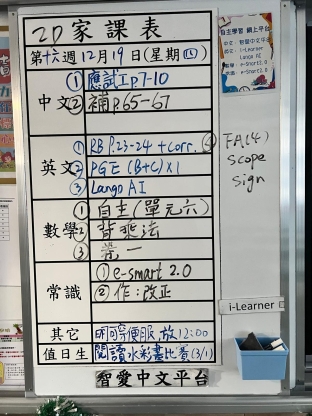 2D 家課表
第十六週 12月19日(星期四)
中文
① 應試工P.7-10
② 補P.65-67
英文
① RB P.23-24 + corr.
② PGE (B+C)×1
③ Lango AI
④ FA(4)
scope
sign
數學
① 自主(單元六)
② 背乘法
③ 業一
常識
① e-smart 2.0
② 作:改正
其它
明:穿便服,放12:00
值日生
閱讀水彩畫比賽(3/1)
智愛中文平台
自主學習 網上平台
i-Learner